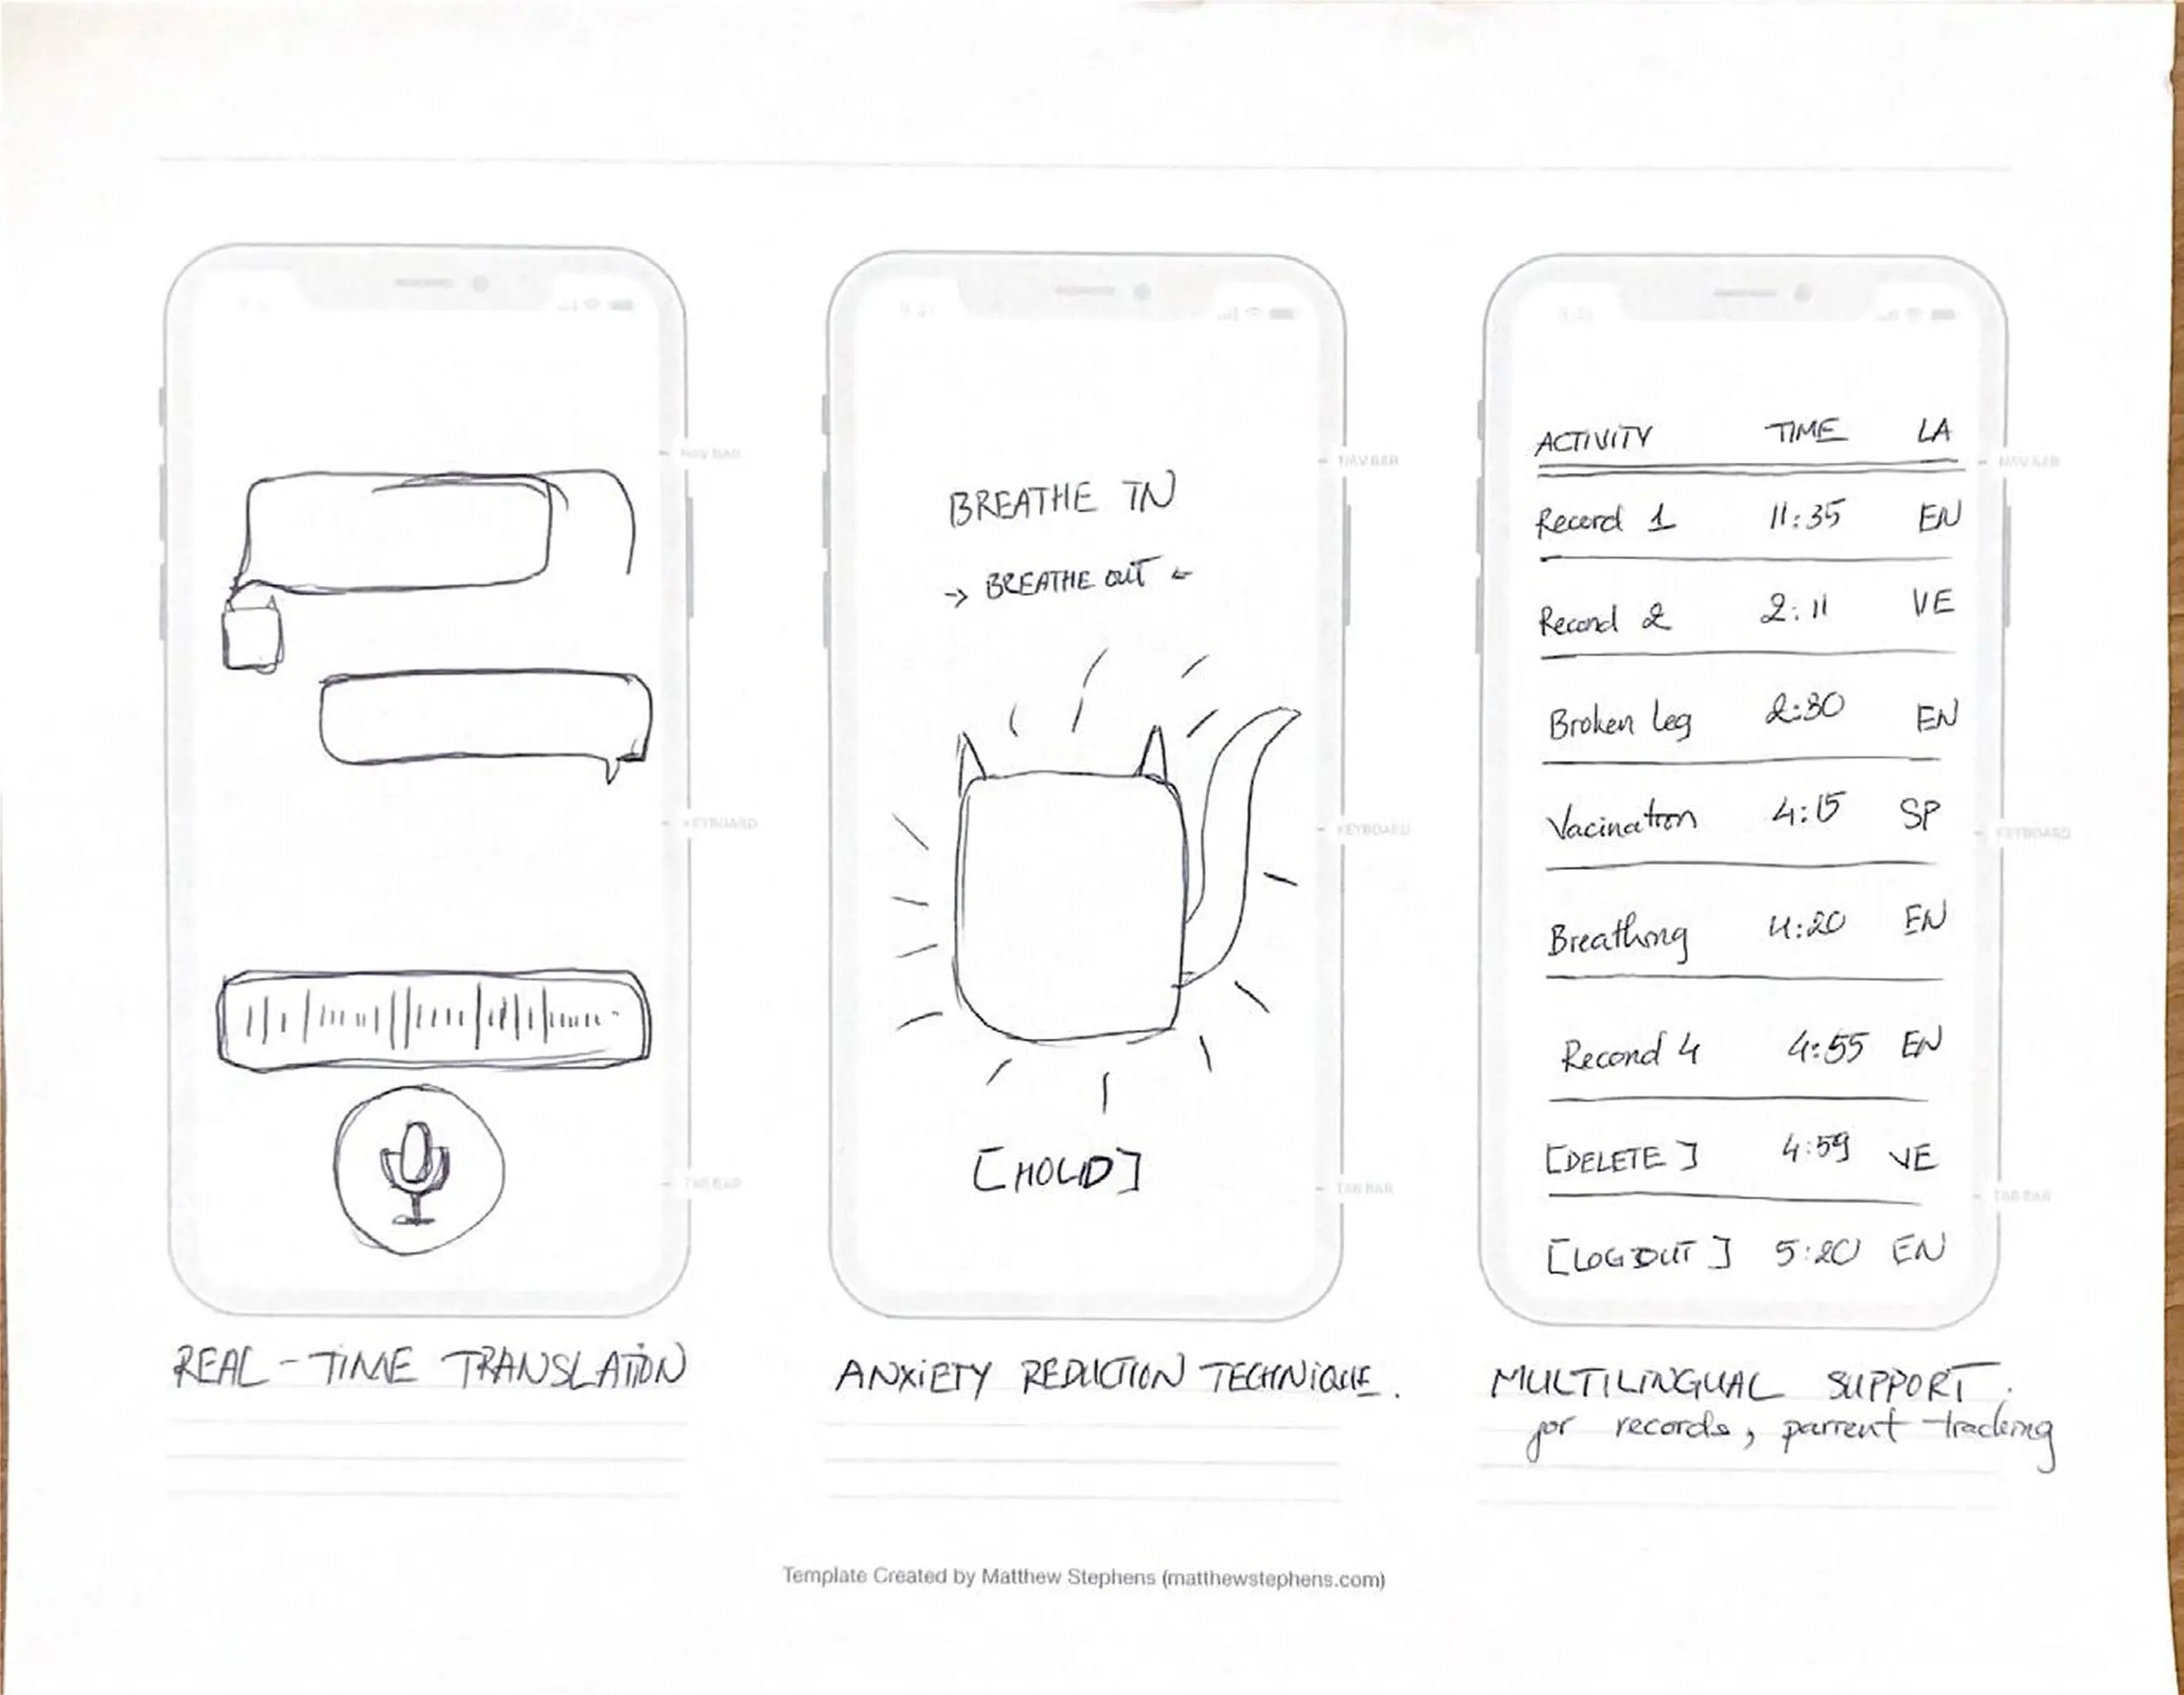 NAV BAR
KEYBOARD
TAB BAR
REAL-TIME TRANSLATION
BREATHE IN
→ BREATHE OUT ←
[HOLD]
NAV BAR
KEYBOARD
TAB BAR
ANXIETY REDUCTION TECHNIQUE.
ACTIVITY TIME LA
Record 1 11:35 EN
Record 2 2:11 VE
Broken leg 2:30 EN
Vacination 4:15 SP
Breathing 4:20 EN
Record 4 4:55 EN
[DELETE] 4:59 VE
[LOGOUT] 5:20 EN
NAV BAR
KEYBOARD
TAB BAR
MULTILINGUAL SUPPORT.
for records, parrent tracking
Template Created by Matthew Stephens (matthewstephens.com)